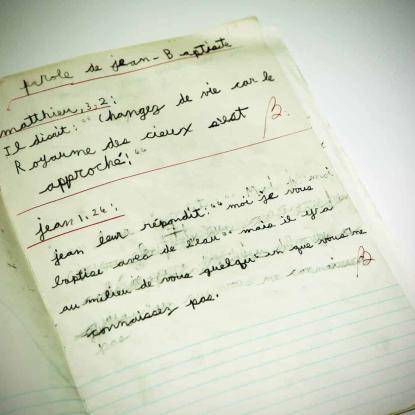 parole de jean-Baptiste
matthieu, 3,2:
Il disait: "Changez de vie car le
Royaume des cieux s'est
approché!"
jean 1,26:
jean leur répondit: "moi je vous
baptise avec de l'eau" mais il y'a
au milieu de vous quelqu'un que vous ne
connaissez pas.